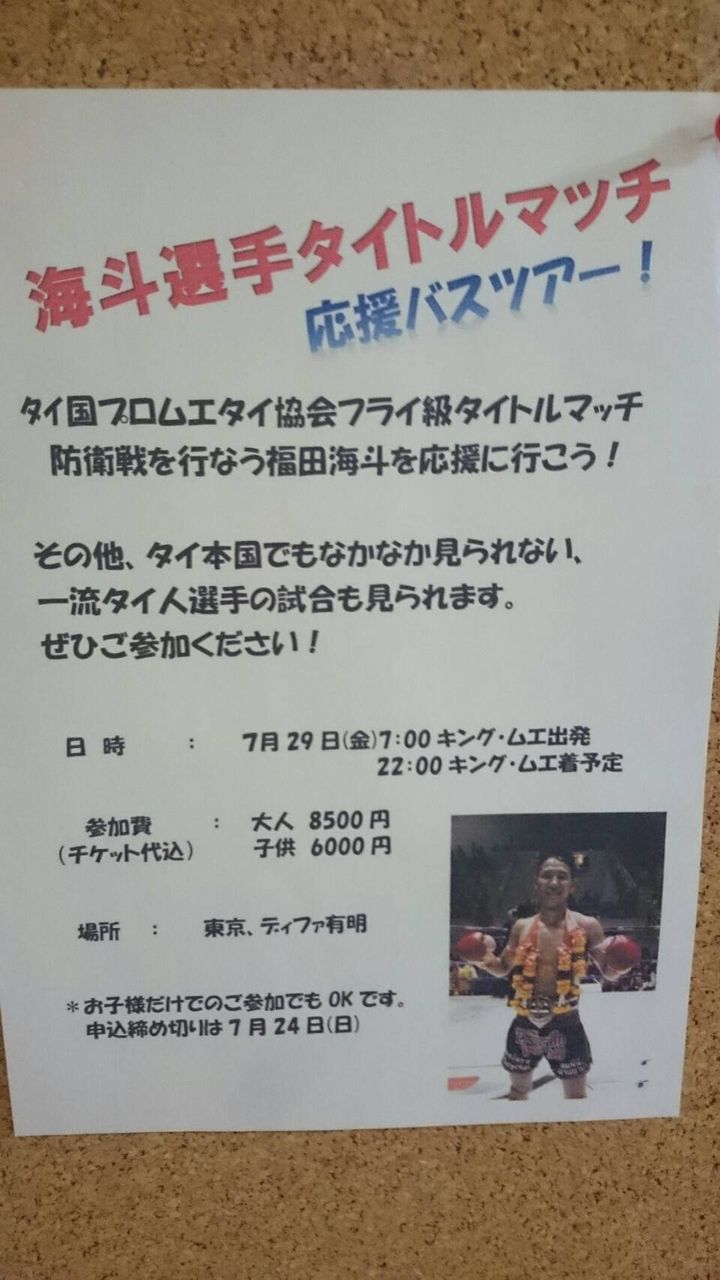 海斗選手タイトルマッチ
応援バスツアー！
タイ国プロムエタイ協会フライ級タイトルマッチ
防衛戦を行なう福田海斗を応援に行こう！
その他、タイ本国でもなかなか見られない、
一流タイ人選手の試合も見られます。
ぜひご参加ください！
日 時 ： 7月29日(金)7:00 キング・ムエ出発
22:00 キング・ムエ着予定
参加費 ： 大人 8500円
（チケット代込） 子供 6000円
場所 ： 東京、ディファ有明
＊お子様だけでのご参加でもOKです。
申込締め切りは7月24日(日)